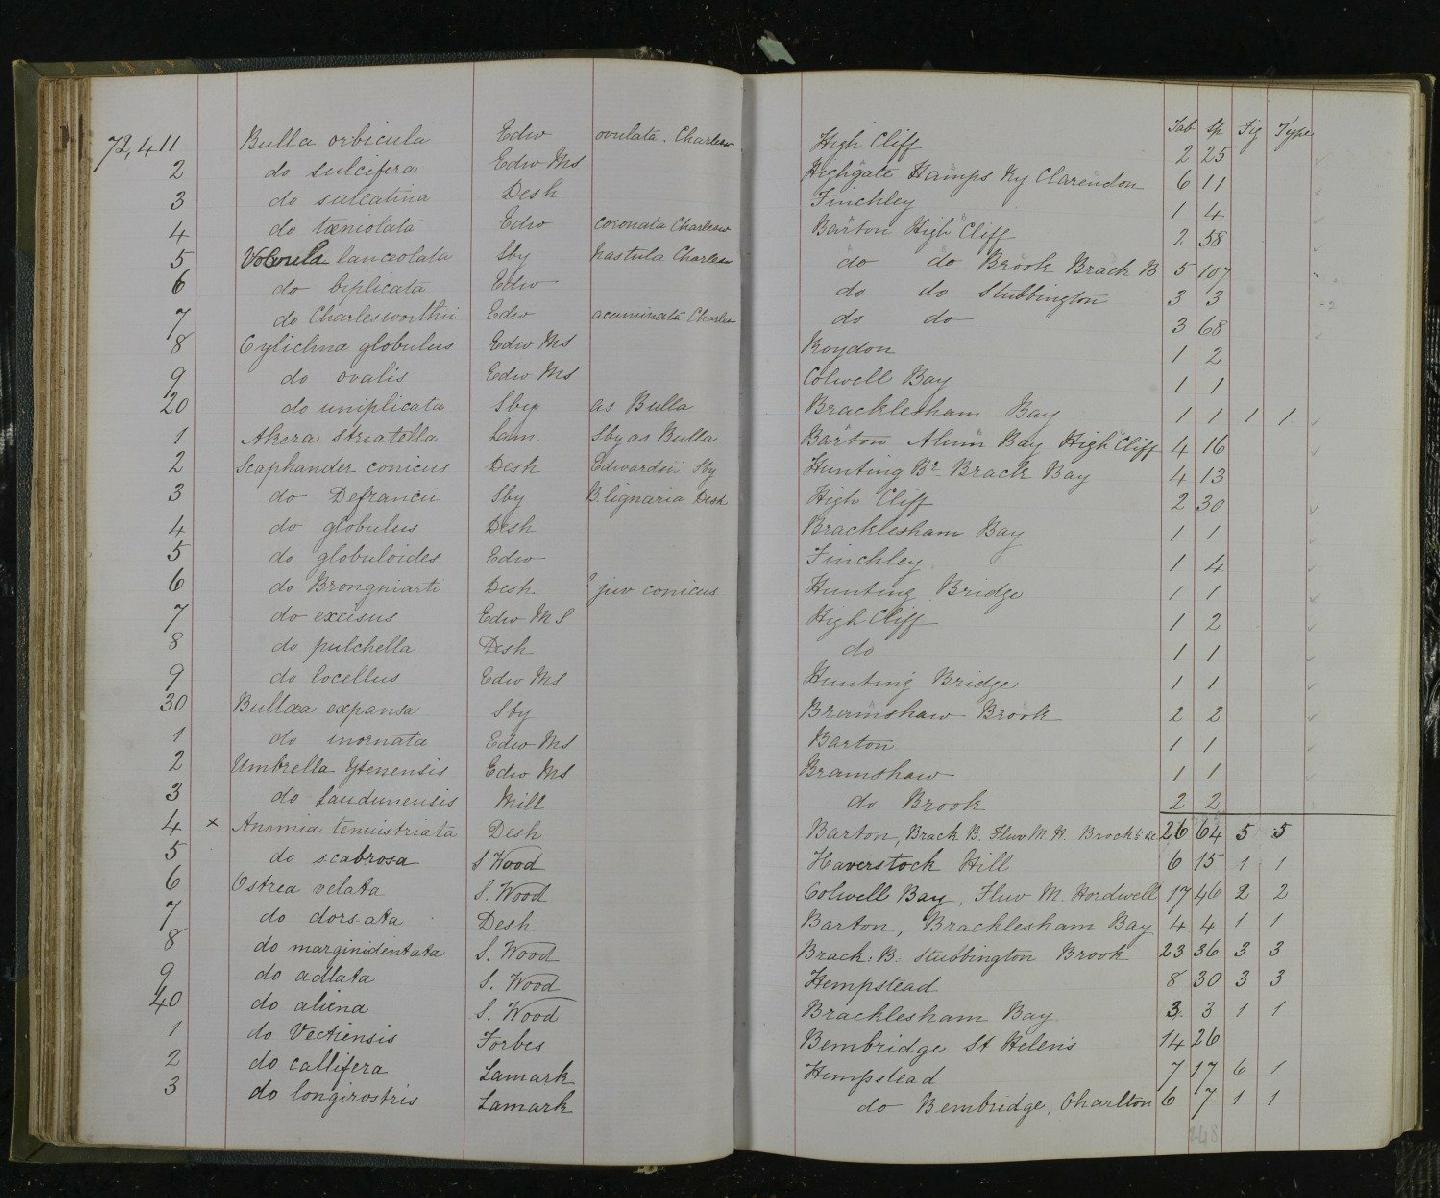 Tab Sp Fig Type
72,411 Bulla orbicula Edw ovulata. Charlesw High Cliff 2 25
2 do sulcifera Edw MS Highgate Hamps Ny Clarendon 6 11
3 do sulcatina Desh Finchley 1 4
4 do tæniolata Edw coronata Charlesw Barton High Cliff 2 58
5 Volvula lanceolata Sby hastula Charlesw do do Brook Brack B 5 107
6 do biplicata Edw do do Stubbington 3 3
7 do Charlesworthii Edw acuminata Charlesw do do 3 68
8 Cylichna globulus Edw MS Roydon 1 2
9 do ovalis Edw MS Colwell Bay 1 1
20 do uniplicata Sby as Bulla Bracklesham Bay 1 1 1 1
1 Akera striatella Lam. Sby as Bulla Barton Alum Bay High Cliff 4 16
2 Scaphander conicus Desh Edwardsii Sby Hunting Br Brack Bay 4 13
3 do Defrancii Sby B. lignaria Desh High Cliff 2 30
4 do globulus Desh Bracklesham Bay 1 1
5 do globuloides Edw Finchley 1 4
6 do Brongniarti Desh ? juv conicus Hunting Bridge 1 1
7 do excisus Edw MS High Cliff 1 2
8 do pulchella Desh do 1 1
9 do locellus Edw MS Hunting Bridge 1 1
30 Bullæa expansa Sby Bramshaw Brook 2 2
1 do inornata Edw MS Barton 1 1
2 Umbrella Ytenensis Edw MS Bramshaw 1 1
3 do laudunensis Mill do Brook 2 2
4 x Anomia tenuistriata Desh Barton, Brack B. Fluv M. H. Brock &c 26 64 5 5
5 do scabrosa S Wood Haverstock Hill 6 15 1 1
6 Ostrea velata S. Wood Colwell Bay, Fluv M. Hordwell 17 46 2 2
7 do dorsata Desh Barton, Bracklesham Bay 4 4 1 1
8 do marginidentata S. Wood Brack. B. Stubbington Brook 23 36 3 3
9 do adlata S. Wood Hempstead 8 30 3 3
40 do aliena S. Wood Bracklesham Bay 3 3 1 1
1 do Vectiensis Forbes Bembridge St Helens 14 26
2 do callifera Lamark Hempstead 7 17 6 1
3 do longirostris Lamark do Bembridge, Charlton 6 7 1 1
248